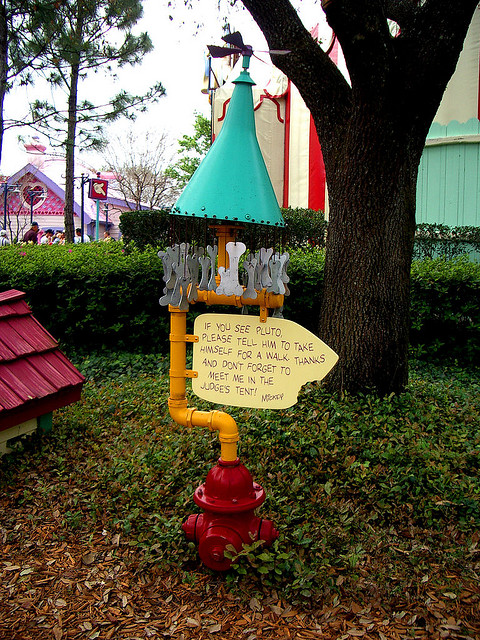 IF YOU SEE PLUTO,
PLEASE TELL HIM TO TAKE
HIMSELF FOR A WALK. THANKS
AND DON'T FORGET TO
MEET ME IN THE
JUDGE'S TENT!
MICKEY